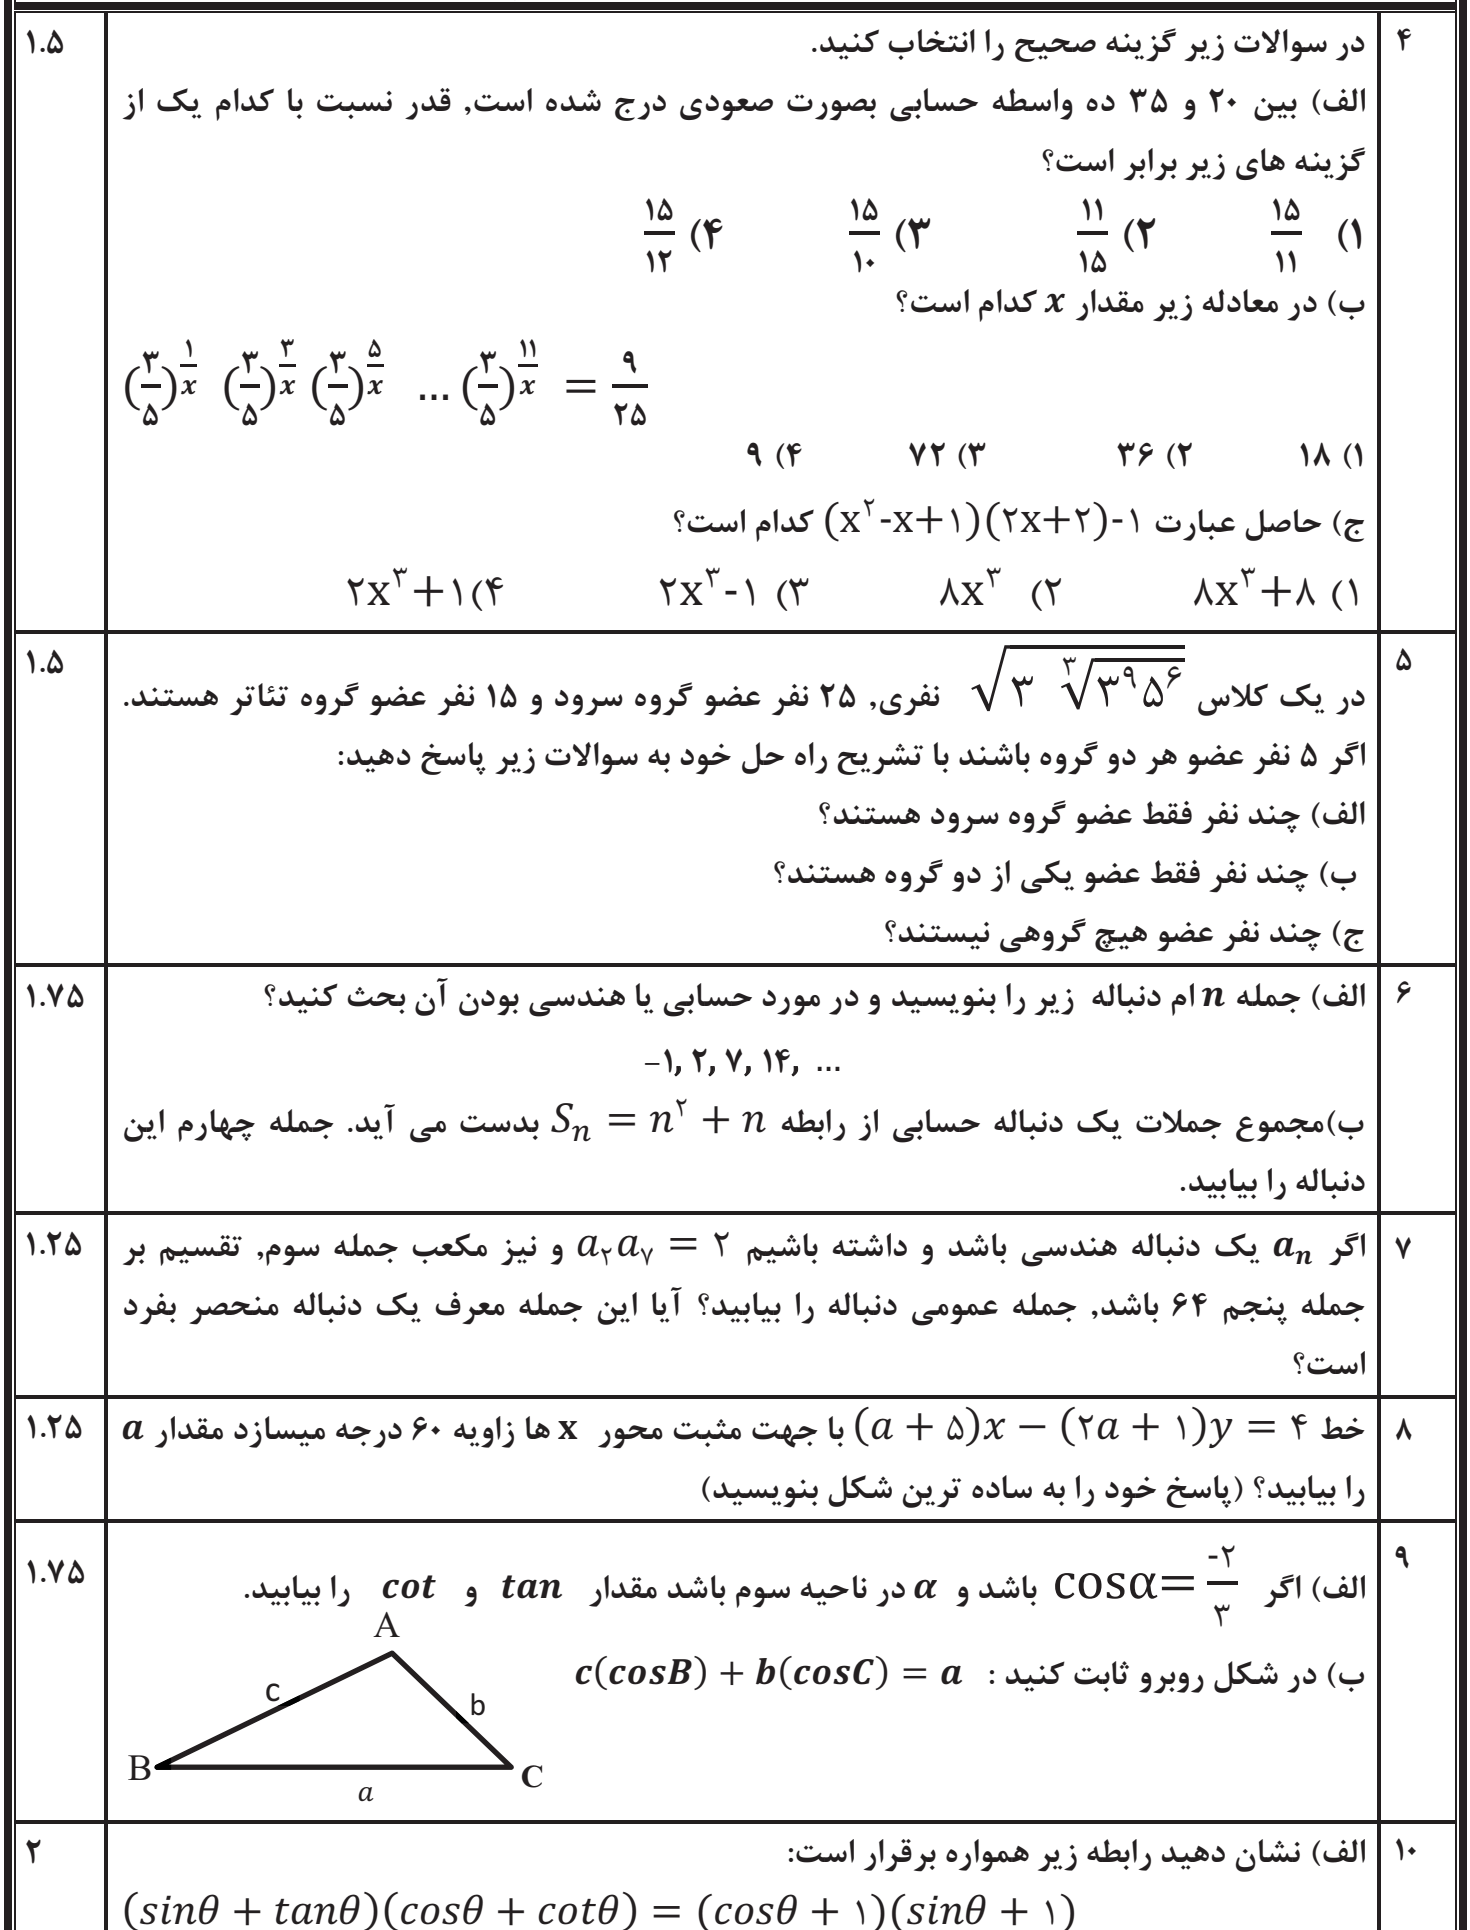 ۴ در سوالات زیر گزینه صحیح را انتخاب کنید. ۱.۵
الف) بین ۲۰ و ۳۵ ده واسطه حسابی بصورت صعودی درج شده است, قدر نسبت با کدام یک از
گزینه های زیر برابر است؟
۱) ۱۵/۱۱ ۲) ۱۱/۱۵ ۳) ۱۵/۱۰ ۴) ۱۵/۱۲
ب) در معادله زیر مقدار x کدام است؟
(۳/۵)^(۱/x) (۳/۵)^(۳/x) (۳/۵)^(۵/x) … (۳/۵)^(۱۱/x) = ۹/۲۵
۱) ۱۸ ۲) ۳۶ ۳) ۷۲ ۴) ۹
ج) حاصل عبارت (x^۲-x+۱)(۲x+۲)-۱ کدام است؟
۱) ۸x^۳+۸ ۲) ۸x^۳ ۳) ۲x^۳-۱ ۴) ۲x^۳+۱
۵ در یک کلاس √(۳ ∛(۳^۹ ۵^۶)) نفری, ۲۵ نفر عضو گروه سرود و ۱۵ نفر عضو گروه تئاتر هستند. ۱.۵
اگر ۵ نفر عضو هر دو گروه باشند با تشریح راه حل خود به سوالات زیر پاسخ دهید:
الف) چند نفر فقط عضو گروه سرود هستند؟
ب) چند نفر فقط عضو یکی از دو گروه هستند؟
ج) چند نفر عضو هیچ گروهی نیستند؟
۶ الف) جمله n ام دنباله زیر را بنویسید و در مورد حسابی یا هندسی بودن آن بحث کنید؟ ۱.۷۵
−۱, ۲, ۷, ۱۴, …
ب)مجموع جملات یک دنباله حسابی از رابطه Sₙ = n^۲ + n بدست می آید. جمله چهارم این
دنباله را بیابید.
۷ اگر aₙ یک دنباله هندسی باشد و داشته باشیم a_۲a_۷ = ۲ و نیز مکعب جمله سوم, تقسیم بر ۱.۲۵
جمله پنجم ۶۴ باشد, جمله عمومی دنباله را بیابید؟ آیا این جمله معرف یک دنباله منحصر بفرد
است؟
۸ خط (a + ۵)x − (۲a + ۱)y = ۴ با جهت مثبت محور x ها زاویه ۶۰ درجه میسازد مقدار a ۱.۲۵
را بیابید؟ (پاسخ خود را به ساده ترین شکل بنویسید)
۹ الف) اگر cosα= -۲/۳ باشد و α در ناحیه سوم باشد مقدار tan و cot را بیابید. ۱.۷۵
ب) در شکل روبرو ثابت کنید : c(cosB) + b(cosC) = a
A
c b
B C
a
۱۰ الف) نشان دهید رابطه زیر همواره برقرار است: ۲
(sinθ + tanθ)(cosθ + cotθ) = (cosθ + ۱)(sinθ + ۱)